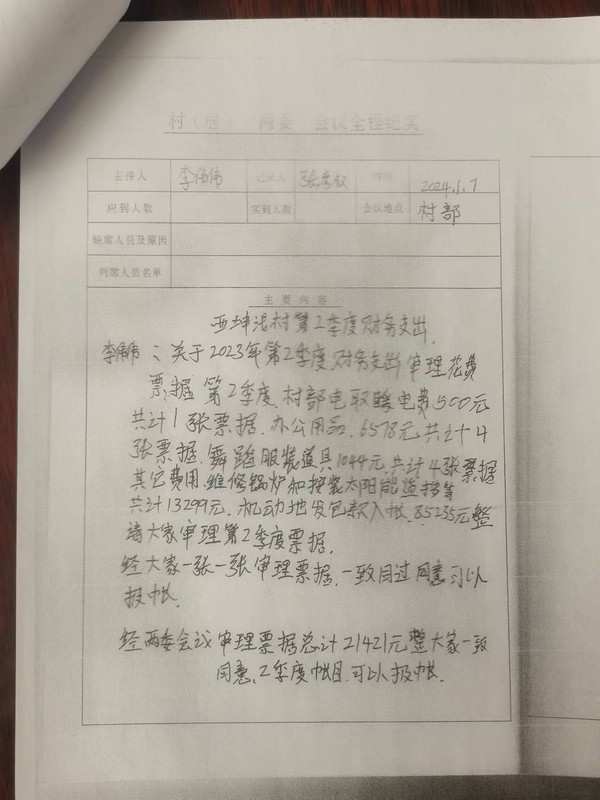 村（居）“两委”会议全程纪实
主持人 李伟伟 记录人 时间 2024.1.7
应到人数 实到人数 会议地点 村部
缺席人员及原因
列席人员名单
主要内容
西坤泥村第2季度财务支出.
李伟伟：关于2023年第2季度财务支出.审理花费
票据 第2季度.村部电取暖电费500元
共计1张票据.办公用品.6578元共计4
张票据.舞蹈服装道具1044元.共计4张票据
其它费用.维修锅炉和按装太阳能 等
共计13299元.机动地发包款入帐.85235元整
请大家审理第2季度票据.
经大家一张一张审理票据.一致同过同意可以
报帐.
经两委会议审理票据总计21421元整大家一致
同意.2季度帐目.可以报帐.